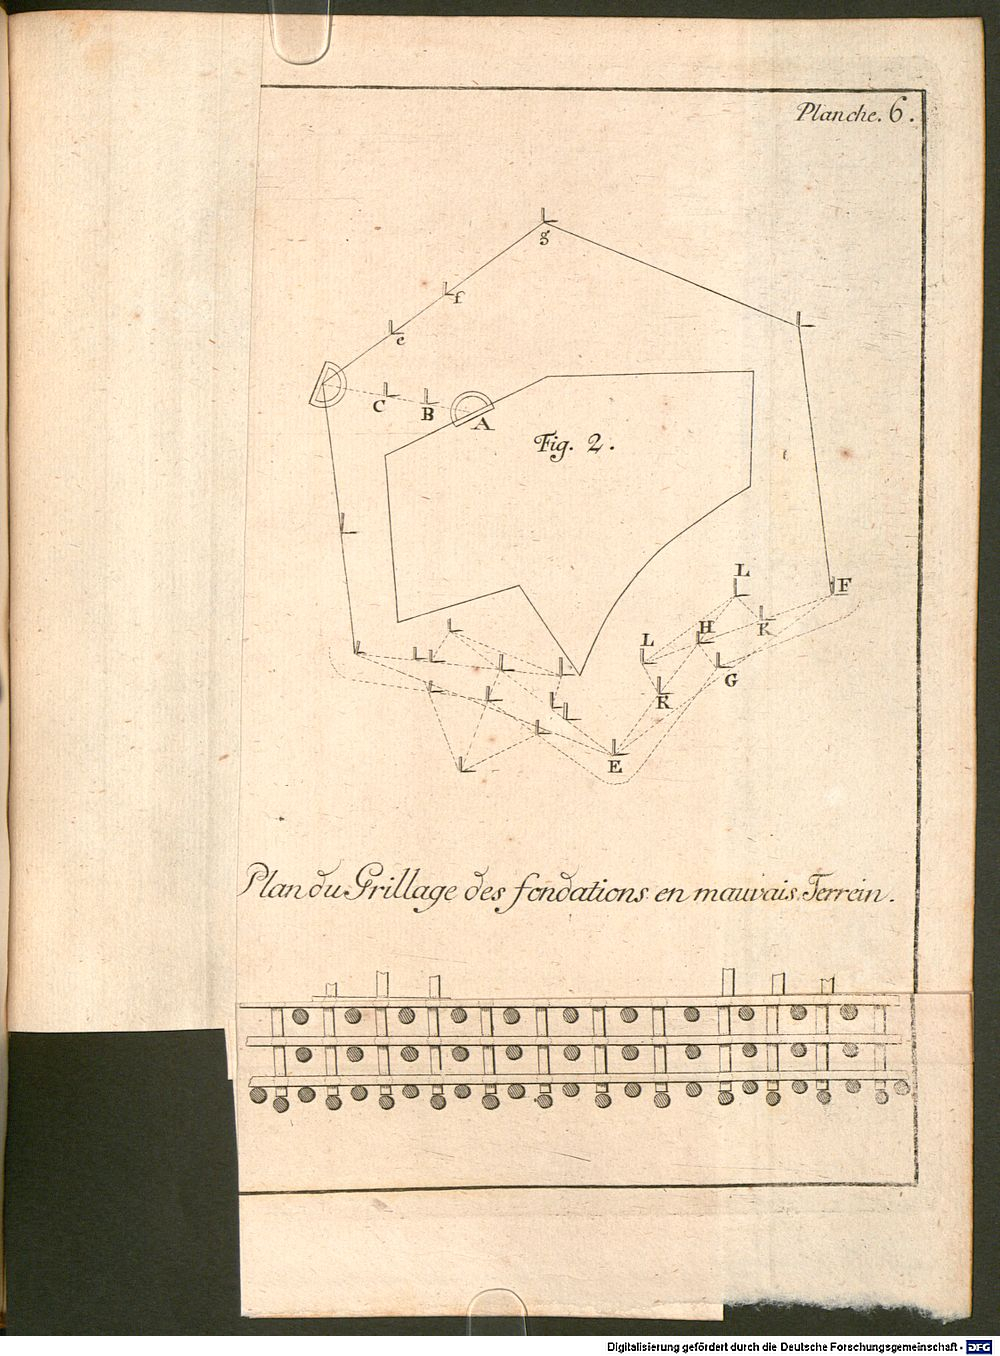 Planche. 6.
g
f
e
C
B
A
Fig. 2.
L
F
K
H
L
G
K
E
Plan du Grillage des fondations en mauvais Terrein.
Digitalisierung gefördert durch die Deutsche Forschungsgemeinschaft - DFG